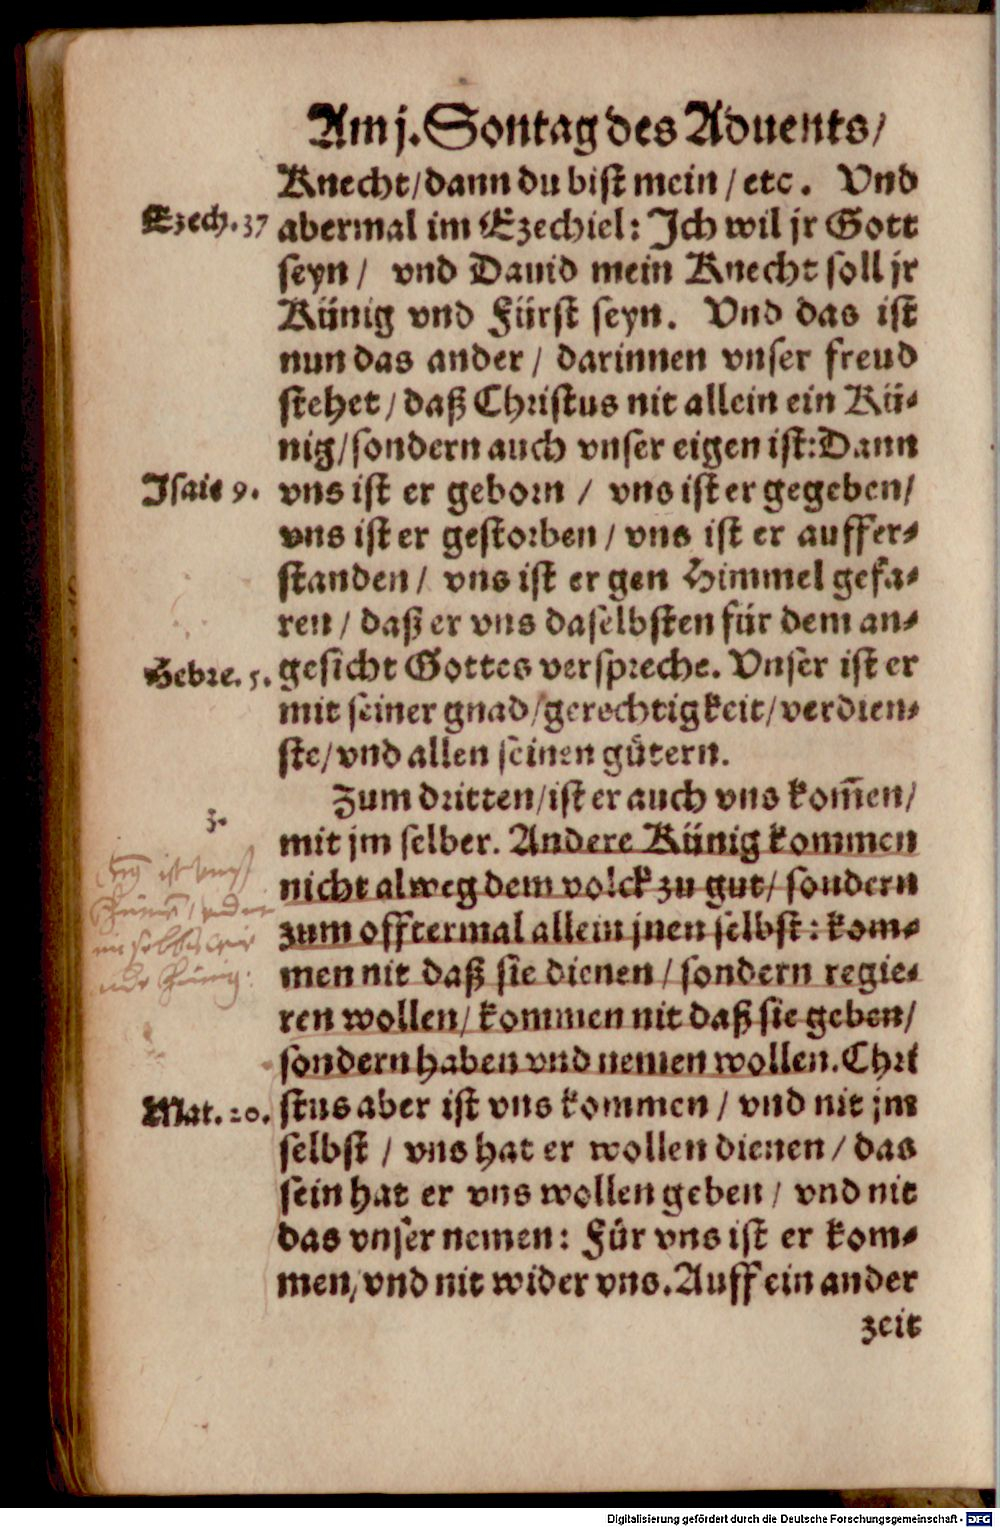 Am j. Sontag des Aduents/
Knecht/dann du bist mein/etc. Vnd
Ezech.37
abermal im Ezechiel: Ich wil jr Gott
seyn/ vnd Dauid mein Knecht soll jr
Künig vnd Fürst seyn. Vnd das ist
nun das ander/ darinnen vnser freud
stehet/daß Christus nit allein ein Kü-
nig/sondern auch vnser eigen ist:Dann
Isaie 9.
vns ist er geborn / vns ist er gegeben/
vns ist er gestorben/vns ist er auffer-
standen/ vns ist er gen Himmel gefa-
ren/daß er vns daselbsten für dem an-
Hebre. 5.
gesicht Gottes verspreche. Vnser ist er
mit seiner gnad/gerechtigkeit/verdien-
ste/vnd allen seinen gütern.
3.
Zum dritten/ist er auch vns kom̄en/
mit jm selber. Andere Künig kommen
nicht alweg dem volck zu gut/sondern
zum offtermal allein jnen selbst: kom-
men nit daß sie dienen/sondern regie-
ren wollen/kommen nit daß sie geben/
sondern haben vnd nemen wollen.Chri
Mat. 20.
stus aber ist vns kommen/vnd nit jm
selbst / vns hat er wollen dienen/das
sein hat er vns wollen geben/ vnd nit
das vnser nemen: Für vns ist er kom-
men/vnd nit wider vns.Auff ein ander
zeit
Digitalisierung gefördert durch die Deutsche Forschungsgemeinschaft - DFG